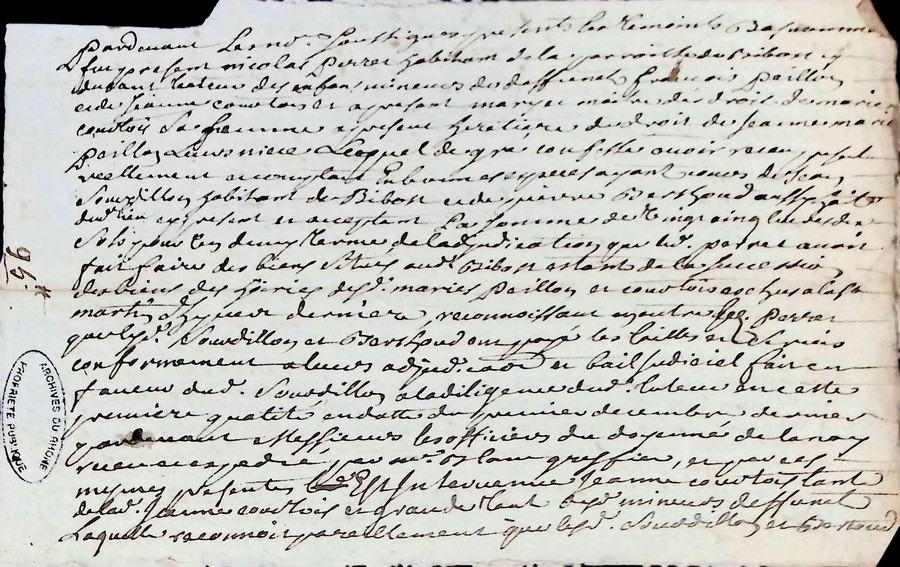 Pardevant Les no.rs soussignes presents les temoins Bas nommes
fut present nicolas Perret habitant de la parroisse de Bibost y
tuteur des enfans mineurs de deffunct francois Peillon
et de jeanne courtois et a present mary et maitre des droits de marie
courtois Sa femme a present heretiere de droit de Jeanne marie
Peillon Leur niece Lequel de gre confesse avoir recu presentement
reellement et comptant En bonnes especes ayant cours de Jean
Sourdillon habitant de Bibost et de pierre Berthoud aussy habt.
dud. lieu cy present et acceptant La somme de vingt cinq livres dix
Sols pour Un demy terme de ladjudication que led. perret avoit
fait faire des biens Situés aud. Bibost estant de la Succession
des biens des hoiries desd. maries Peillon et courtois echus a la St
martin d'hyver derniere, reconnoissant en outre led. Perret
que lesd. Sourdillon et Berthoud ont payé les tailles
conformement a leurs adjudication et bail judiciel fait en
faveur dud. Sourdillon a la diligence dud. tuteur en cette
premiere qualité en datte du premier decembre dernier
pardevant Messieurs les officiers du doyenné de
expedié, par mr. greffier, et par ces
mesmes presentes Est Intervenue Jeanne courtois tante
de lad. Jeanne courtois et grande tant desd. mineurs deffunct
Laquelle reconnoit pareillement que lesd. Sourdillon et Bertoud
95.
ARCHIVES DU RHONE
PROPRIETE PUBLIQUE